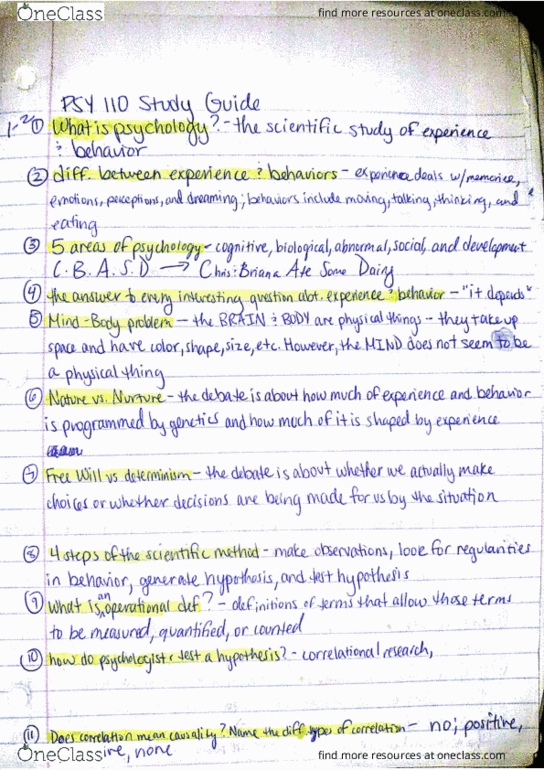 OneClass
find more resources at oneclass.com
PSY 110 Study Guide
1-2 ① What is psychology? - the scientific study of experience
& behavior
② diff. between experience & behaviors - experience deals w/memories,
emotions, perceptions, and dreaming; behaviors include moving, talking, thinking, and
eating
③ 5 areas of psychology - cognitive, biological, abnormal, social, and development
C.B.A.S.D → Chris: Briana Ate Some Dairy
④ the answer to every interesting question abt. experience & behavior - "it depends"
⑤ Mind-Body problem - the BRAIN & BODY are physical things - they take up
space and have color, shape, size, etc. However, the MIND does not seem to be
a physical thing
⑥ Nature vs. Nurture - the debate is about how much of experience and behavior
is programmed by genetics and how much of it is shaped by experience
⑦ Free Will vs. determinism - the debate is about whether we actually make
choices or whether decisions are being made for us by the situation
⑧ 4 steps of the scientific method - make observations, look for regularities
in behavior, generate hypothesis, and test hypothesis
⑨ What is an operational def? - definitions of terms that allow those terms
to be measured, quantified, or counted
⑩ how do psychologists test a hypothesis? - correlational research,
⑪ Does correlation mean causality? Name the diff types of correlation - no; positive,
ive, none
OneClass
find more resources at oneclass.com